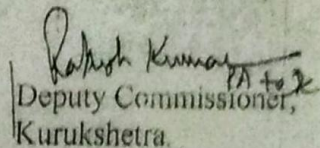 Rakesh Kumar
PA to DC
Deputy Commissioner,
Kurukshetra.